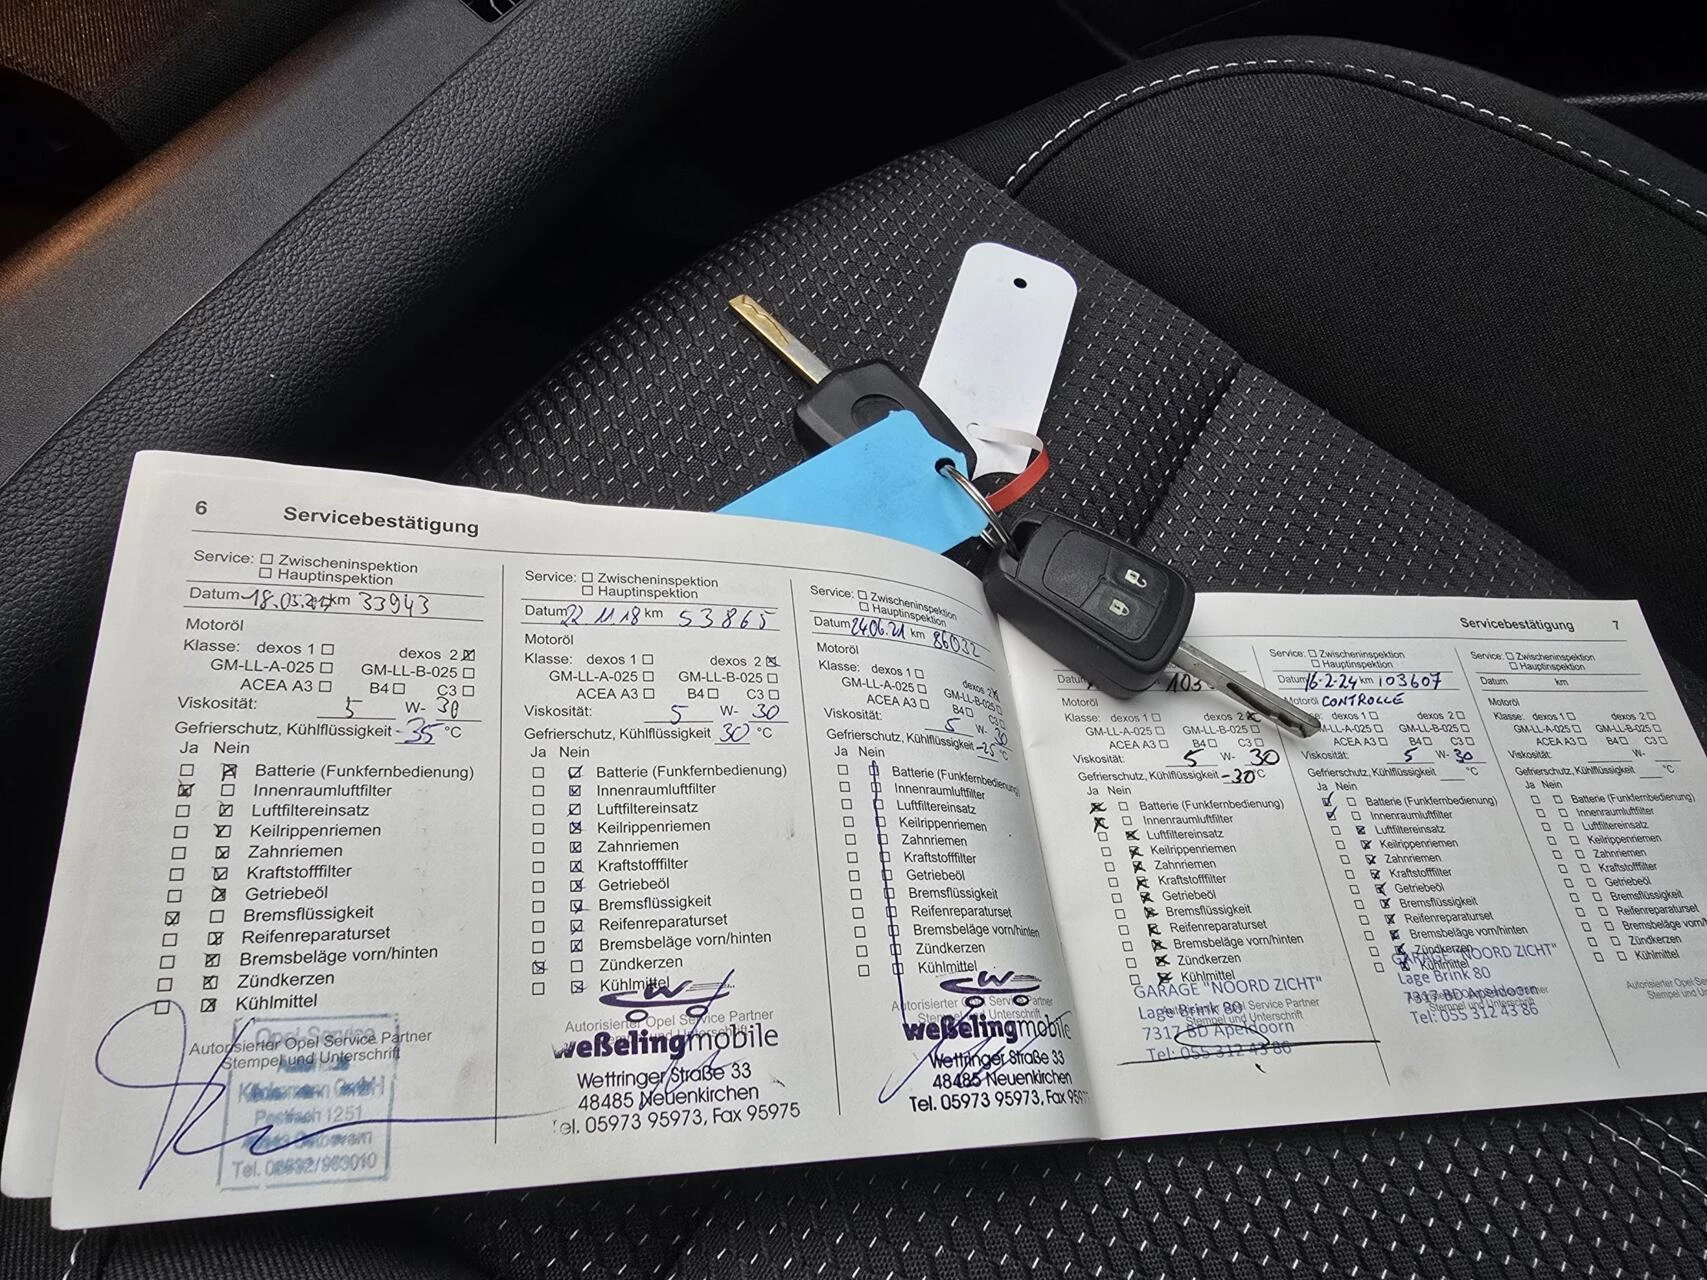 6 Servicebestätigung
Service: Zwischeninspektion
Hauptinspektion
Datum 18.05. km 33943
Motoröl
Klasse: dexos 1 dexos 2
GM-LL-A-025 GM-LL-B-025
ACEA A3 B4 C3
Viskosität: 5 W- 30
Gefrierschutz, Kühlflüssigkeit -35 °C
Ja Nein
Batterie (Funkfernbedienung)
Innenraumluftfilter
Luftfiltereinsatz
Keilrippenriemen
Zahnriemen
Kraftstofffilter
Getriebeöl
Bremsflüssigkeit
Reifenreparaturset
Bremsbeläge vorn/hinten
Zündkerzen
Kühlmittel
Autorisierter Opel Service Partner
Stempel und Unterschrift
Opel Service
GmbH
Postfach 1251
Tel.
Service: Zwischeninspektion
Hauptinspektion
Datum 22 11.18 km 53865
Motoröl
Klasse: dexos 1 dexos 2
GM-LL-A-025 GM-LL-B-025
ACEA A3 B4 C3
Viskosität: 5 W- 30
Gefrierschutz, Kühlflüssigkeit 30 °C
Ja Nein
Batterie (Funkfernbedienung)
Innenraumluftfilter
Luftfiltereinsatz
Keilrippenriemen
Zahnriemen
Kraftstofffilter
Getriebeöl
Bremsflüssigkeit
Reifenreparaturset
Bremsbeläge vorn/hinten
Zündkerzen
Kühlmittel
Autorisierter Opel Service Partner
Stempel und Unterschrift
weßelingmobile
Wettringer Straße 33
48485 Neuenkirchen
Tel. 05973 95973, Fax 95975
Service: Zwischeninspektion
Hauptinspektion
Datum 24.06.21 km 86032
Motoröl
Klasse: dexos 1 dexos 2
GM-LL-A-025 GM-LL-B-025
ACEA A3 B4 C3
Viskosität: 5 W- 30
Gefrierschutz, Kühlflüssigkeit -25 °C
Ja Nein
Batterie (Funkfernbedienung)
Innenraumluftfilter
Luftfiltereinsatz
Keilrippenriemen
Zahnriemen
Kraftstofffilter
Getriebeöl
Bremsflüssigkeit
Reifenreparaturset
Bremsbeläge vorn/hinten
Zündkerzen
Kühlmittel
Autorisierter Opel Service Partner
Stempel und Unterschrift
weßelingmobile
Wettringer Straße 33
48485 Neuenkirchen
Tel. 05973 95973, Fax
Servicebestätigung 7
103
Motoröl
Klasse: dexos 1 dexos 2
GM-LL-A-025 GM-LL-B-025
ACEA A3 B4 C3
Viskosität: 5 W- 30
Gefrierschutz, Kühlflüssigkeit -30 °C
Ja Nein
Batterie (Funkfernbedienung)
Innenraumluftfilter
Luftfiltereinsatz
Keilrippenriemen
Zahnriemen
Kraftstofffilter
Getriebeöl
Bremsflüssigkeit
Reifenreparaturset
Bremsbeläge vorn/hinten
Zündkerzen
Kühlmittel
GARAGE "NOORD ZICHT"
Lage Brink 80
7317 BD Apeldoorn
Tel: 055 312 43 86
Service: Zwischeninspektion
Hauptinspektion
Datum 16-2-24 km 103607
Motoröl CONTROLLE
Klasse: dexos 1 dexos 2
GM-LL-A-025 GM-LL-B-025
ACEA A3 B4 C3
Viskosität: 5 W- 30
Gefrierschutz, Kühlflüssigkeit °C
Ja Nein
Batterie (Funkfernbedienung)
Innenraumluftfilter
Luftfiltereinsatz
Keilrippenriemen
Zahnriemen
Kraftstofffilter
Getriebeöl
Bremsflüssigkeit
Reifenreparaturset
Bremsbeläge vorn/hinten
Zündkerzen
Kühlmittel
GARAGE "NOORD ZICHT"
Lage Brink 80
7317 BD Apeldoorn
Tel: 055 312 43 86
Service: Zwischeninspektion
Hauptinspektion
Datum km
Motoröl
Klasse: dexos 1 dexos 2
GM-LL-A-025 GM-LL-B-025
ACEA A3 B4 C3
Viskosität: W-
Gefrierschutz, Kühlflüssigkeit °C
Ja Nein
Batterie (Funkfernbedienung)
Innenraumluftfilter
Luftfiltereinsatz
Keilrippenriemen
Zahnriemen
Kraftstofffilter
Getriebeöl
Bremsflüssigkeit
Reifenreparaturset
Bremsbeläge vorn/
Zündkerzen
Kühlmittel
Autorisierter Opel Service
Stempel und